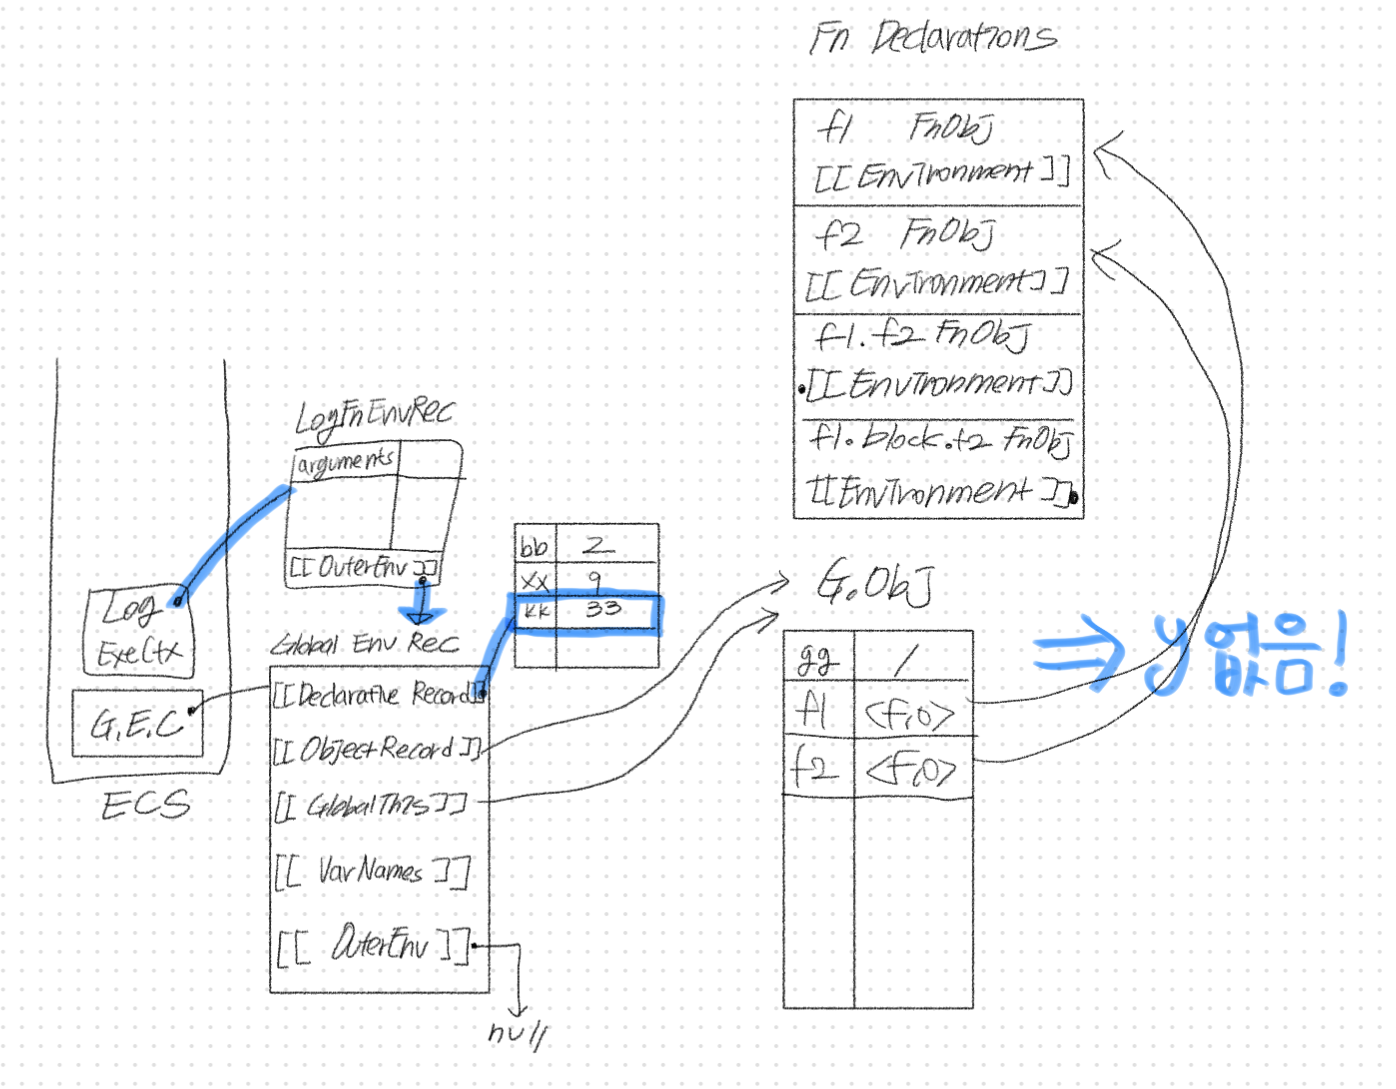 Fn Declarations
f1 FnObj
[[Environment]]
f2 FnObj
[[Environment]]
f1.f2 FnObj
[[Environment]]
f1.block.f2 FnObj
[[Environment]]
LogFnEnvRec
arguments
[[OuterEnv]]
Log
ExeCtx
G.E.C
ECS
bb 2
xx 9
kk 33
Global Env Rec
[[Declarative Record]]
[[ObjectRecord]]
[[GlobalThis]]
[[VarNames]]
[[OuterEnv]]
null
G.Obj
gg 1
f1 <F.O>
f2 <F.O>
⇒ y 없음!